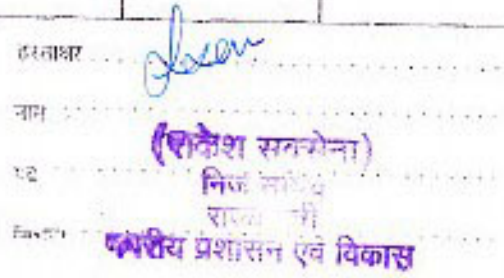 हस्ताक्षर
नाम
(राकेश सक्सेना)
पद
निज सचिव
राज्य मंत्री
विभाग
नगरीय प्रशासन एवं विकास